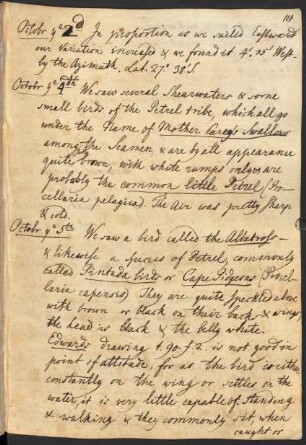 111
Octobr ye 2d In proportion as we sailed Eastward
our Variation increased & we found it 4°. 15' West.
by the Azimuth. Lat. 27° 38' S.
Octobr ye 4th We saw several Shearwaters & some
small birds of the Petrel tribe, which all go
under the Name of Mother Carey's Swallows
among the Seamen & are by all appearance
quite brown, with white rumps only & are
probably the common little Petrel (Pro-
cellaria pelagica). The Air was pretty sharp
& cold.
Octobr ye 5th We saw a bird called the Albatross
& likewise a Species of Petrel, commonly
called Pintada birds or Cape Pidgeons (Procel-
laria capensis) They are quite speckled above
with brown or black on their backs & wings,
the head is black & the belly white.
Edwards drawing t. 90. f. 2. is not good in
point of attitude, for as the bird is either
constantly on the wing or settles on the
water, it is very little capable of standing
& walking & they commonly sit when
caught or